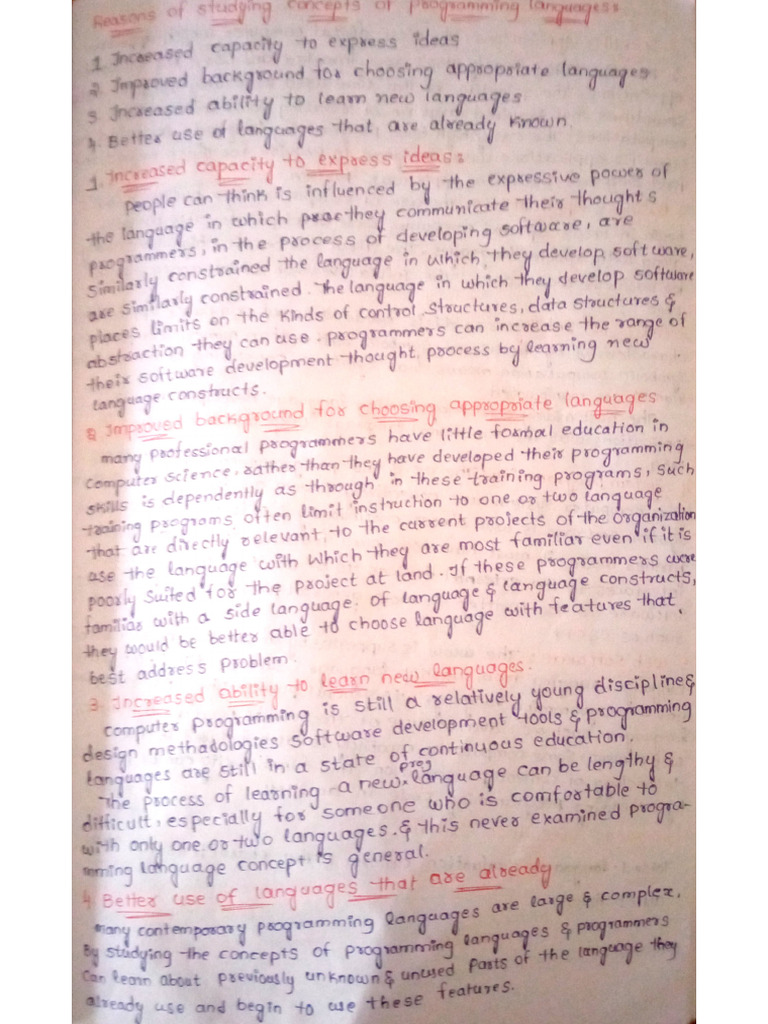 Reasons of studying concepts of programming languages:
1. Increased capacity to express ideas
2. Improved background for choosing appropriate languages
3. Increased ability to learn new languages
4. Better use of languages that are already known.
1. Increased capacity to express ideas:
people can think is influenced by the expressive power of
the language in which they communicate their thoughts
programmers, in the process of developing software, are
similarly constrained the language in which they develop software,
are similarly constrained. The language in which they develop software
places limits on the kinds of control structures, data structures &
abstraction they can use. programmers can increase the range of
their software development thought process by learning new
language constructs.
2 Improved background for choosing appropriate languages
many professional programmers have little formal education in
computer science, rather than they have developed their programming
skills is dependently as through in these training programs, such
training programs often limit instruction to one or two language
that are directly relevant to the current projects of the organization
use the language with which they are most familiar even if it is
poorly suited for the project at land. If these programmers were
familiar with a side language of language & language constructs,
they would be better able to choose language with features that
best address problem.
3. Increased ability to learn new languages.
computer programming is still a relatively young discipline &
design methadologies software development tools & programming
languages are still in a state of continuous education.
The process of learning a new prog language can be lengthy &
difficult, especially for someone who is comfortable to
with only one or two languages. & this never examined progra-
mming language concept is general.
4. Better use of languages that are already
many contemporary programming languages are large & complex.
By studying the concepts of programming languages & programmers
can learn about previously unknown & unused parts of the language they
already use and begin to use these features.